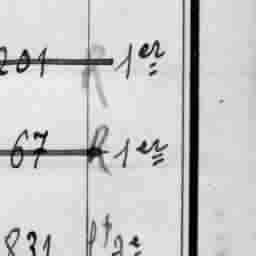 201 R 1er
67 R 1er
831 2e